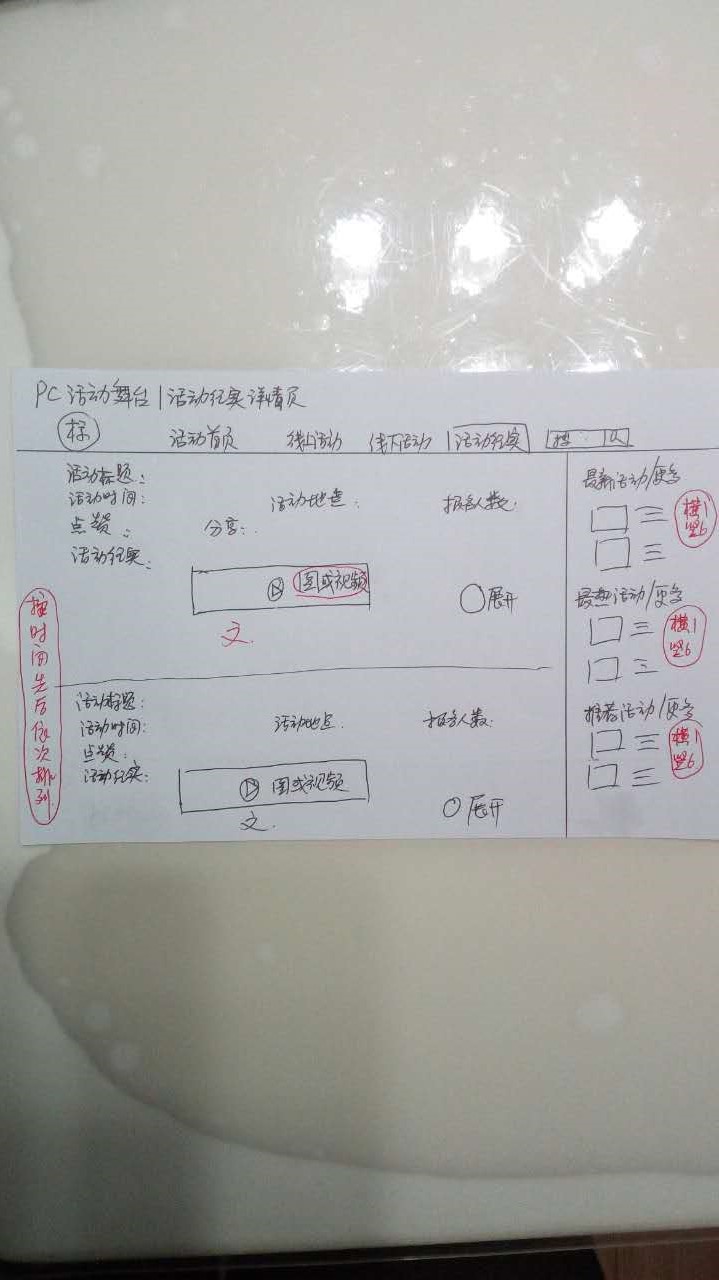 PC活动舞台|活动纪实详情页
标 活动首页 线上活动 线下活动 活动纪实
活动标题:
活动时间: 活动地点: 报名人数:
点赞: 分享:
活动纪实:
图或视频
文 展开
活动标题:
活动时间: 活动地点 报名人数:
点赞:
活动纪实:
图或视频
文 展开
按时间先后依次排列
最新活动/更多
横1
竖6
最热活动/更多
横1
竖6
推荐活动/更多
横1
竖6